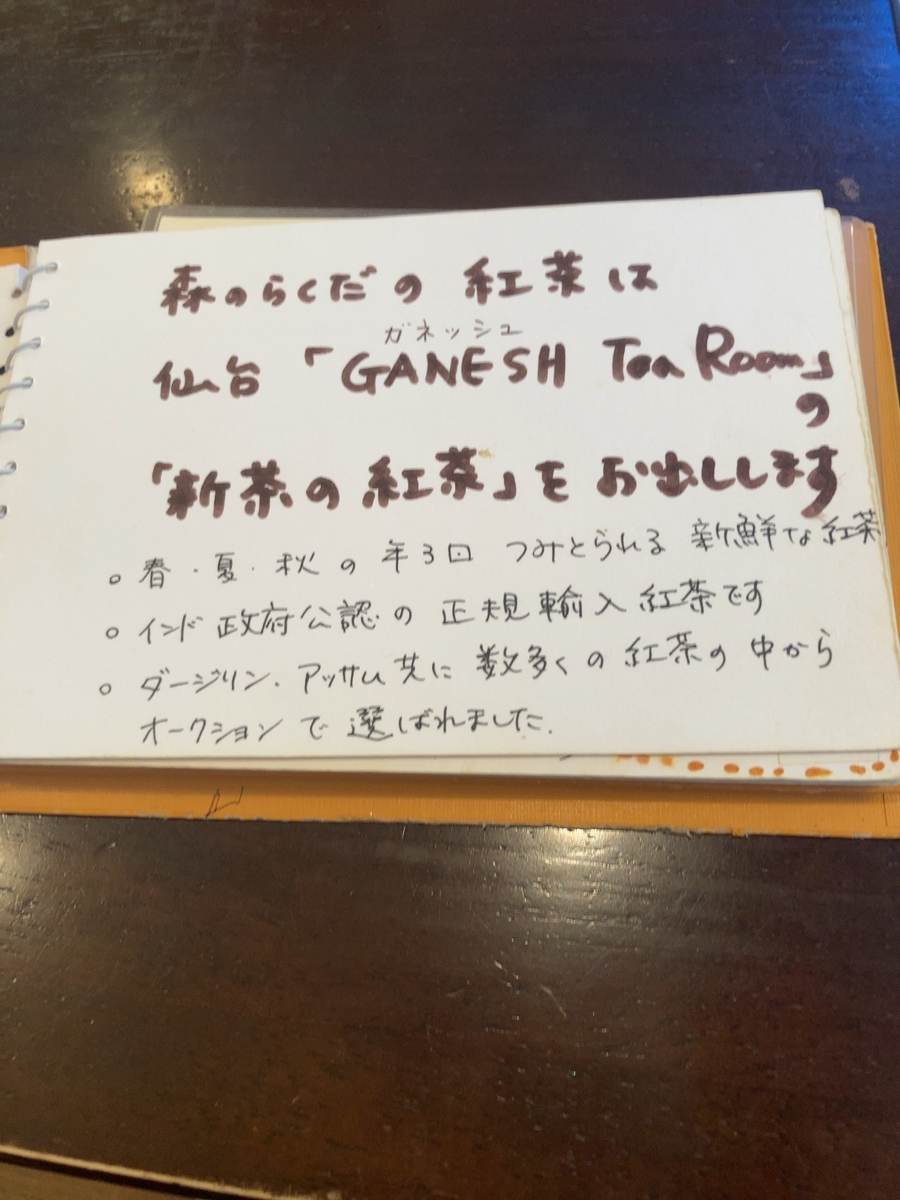 森のらくだの 紅茶は
ガネッシュ
仙台「GANESH Tea Room」
の
「新茶の紅茶」を お出しします
○ 春・夏・秋の年3回 つみとられる 新鮮な紅茶
○ インド政府公認の 正規輸入紅茶です
○ ダージリン、アッサム共に 数多くの紅茶の中から
オークションで選ばれました.